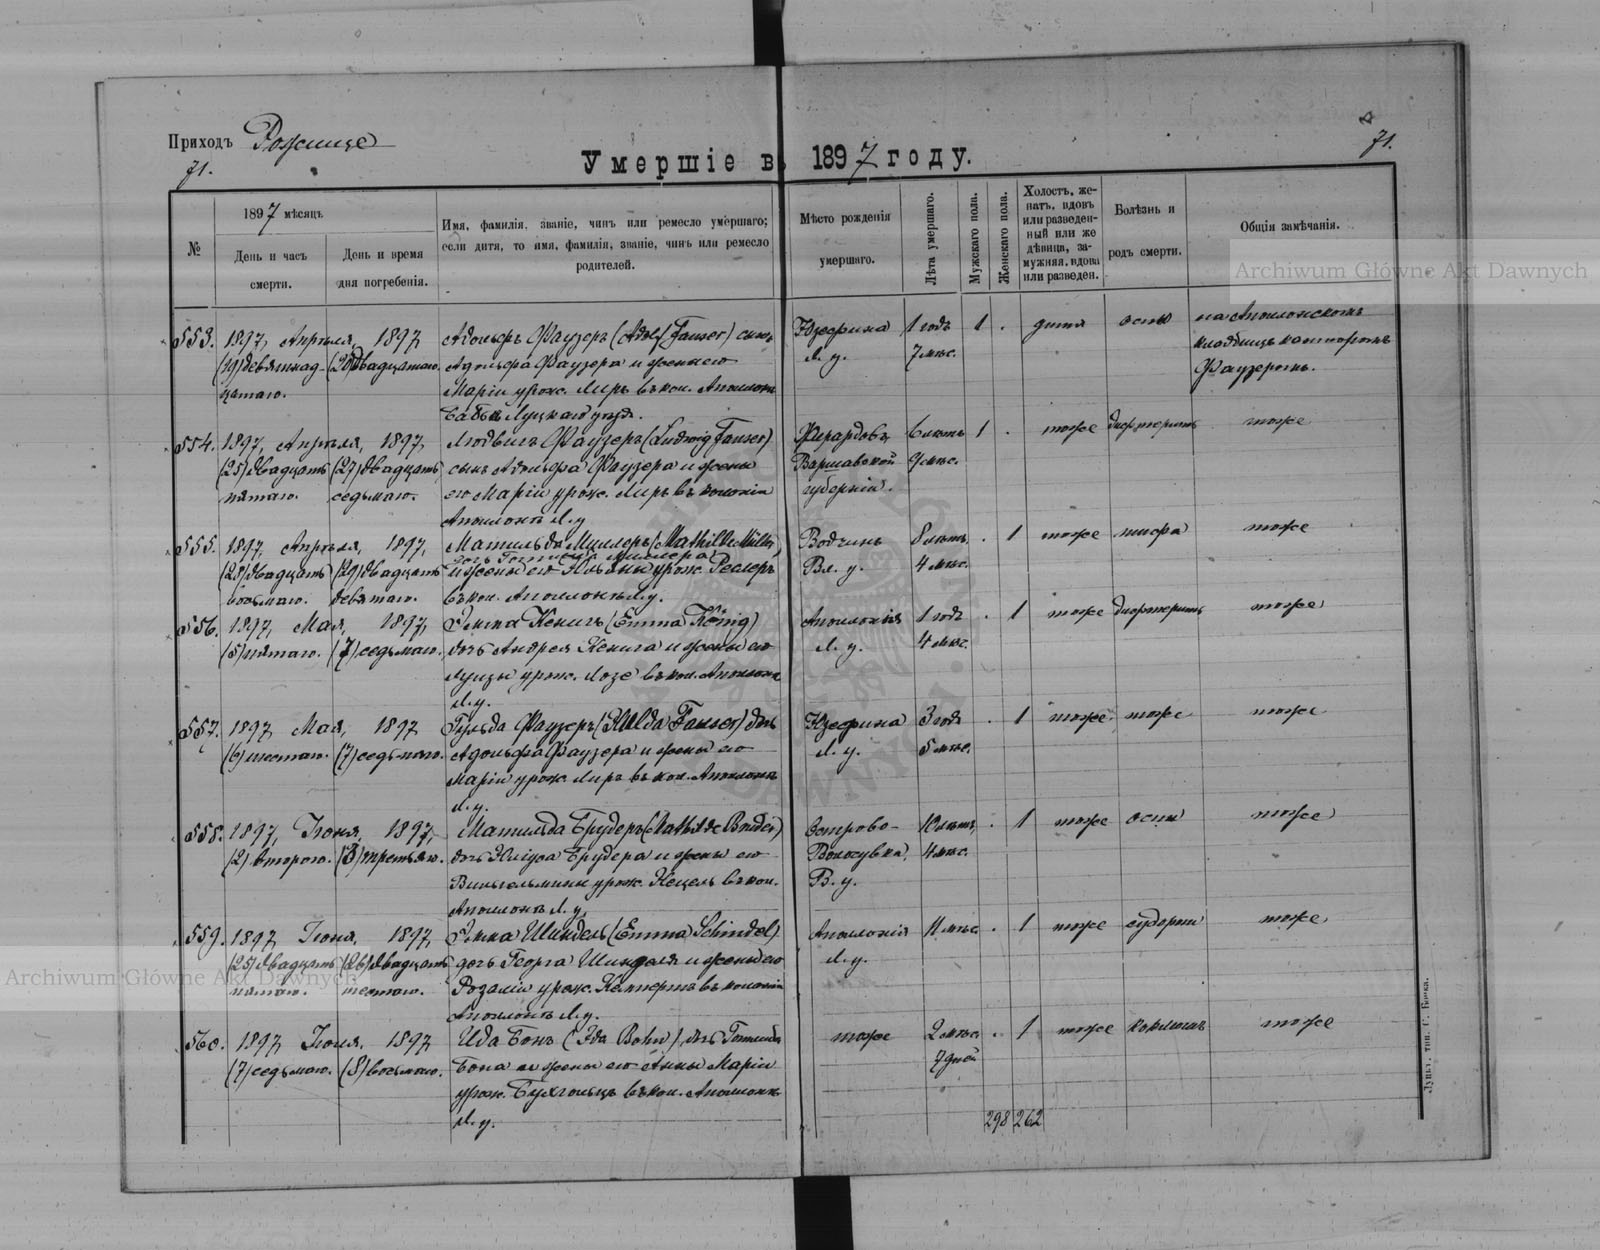 Приходъ Рожище
71.
71.
Умершіе въ 1897 году.
№
1897 мѣсяцъ
День и часъ смерти.
День и время дня погребенія.
Имя, фамилія, званіе, чинъ или ремесло умершаго; если дитя, то имя, фамилія, званіе, чинъ или ремесло родителей.
Мѣсто рожденія умершаго.
Лѣта умершаго.
Мужскаго пола.
Женскаго пола.
Холостъ, женатъ, вдовъ или разведенный или же дѣвица, замужняя, вдова или разведен.
Болѣзнь и родъ смерти.
Общія замѣчанія.
Archiwum Główne Akt Dawnych
553. 1897, Апрѣля, 1897, Адольфъ Фаузеръ (Adolf Fauser) сынъ Юзефина 1 годъ 1 . дитя оспы на Аполонскомъ
(19) девятнад- (20) двадцатаго. Адольфа Фаузера и жены его Л. у. 7 мѣс. кладбищѣ канторомъ
цатаго. Маріи урож. Лиръ въ кол. Аполлонъ Фаузеромъ.
Луцкаго уѣзд.
554. 1897, Апрѣля, 1897, Людвигъ Фаузеръ (Ludwig Fauser) Жирардовъ 6 лѣтъ 1 . тоже дифтеритъ тоже
(25) двадцать (27) двадцать сынъ Адольфа Фаузера и жены Варшавской 9 мѣс.
пятаго. седьмаго. его Маріи урож. Лиръ въ колоніи губерніи.
Аполлонъ Л. у
555. 1897, Апрѣля, 1897, Матильда Миллеръ (Mathilde Müller) 8 лѣтъ . 1 тоже тифа тоже
дочь Миллера
(28) двадцать (29) двадцать и жены его урож. Реслеръ Вл. у. 4 мѣс.
восьмаго. девятаго. въ кол. Аполлонъ Л. у.
556. 1897, Мая, 1897, Эмма Кенигъ (Emma König) Аполлонія 1 годъ . 1 тоже дифтеритъ тоже
(5) пятаго. (7) седьмаго. дочь Андрея Кенига и жены его Л. у. 4 мѣс.
Луизы урож. Лозе въ кол. Аполлонъ
Л. у.
557. 1897, Мая, 1897 Гульда Фаузеръ (Hulda Fauser) дочь Юзефина 3 года . 1 тоже тоже тоже
(6) шестаго. (7) седьмаго. Адольфа Фаузера и жены его Л. у. 5 мѣс.
Маріи урож. Лиръ въ кол. Аполлонъ
Л. у.
558. 1897, Іюня, 1897, Матильда Брудеръ (Mathilde Bruder) Острово- 10 лѣтъ . 1 тоже оспы тоже
(2) втораго. (3) третьяго. дочь Юліуса Брудера и жены его 4 мѣс.
Вильгельмины урож. Кецель въ кол. В. у.
Аполлонъ Л. у.
559. 1897, Іюня, 1897, Эмма Шиндель (Emma Schindel) Аполлонія 11 мѣс . 1 тоже судороги тоже
(25) двадцать (26) двадцать дочь Георга Шинделя и жены его Л. у.
пятаго. шестаго. Розаліи урож. въ колоніи
Аполлонъ Л. у.
560. 1897, Іюля, 1897 Ида Бонъ (Ida Bohn), дочь Готлиба тоже 2 мѣс. . 1 тоже тоже
(7) седьмаго. (8) восьмаго. Бона и жены его Анны Маріи 7 дней
урож. Бухгольцъ въ кол. Аполлонъ
Л. у.
298 262
Archiwum Główne Akt Dawnych